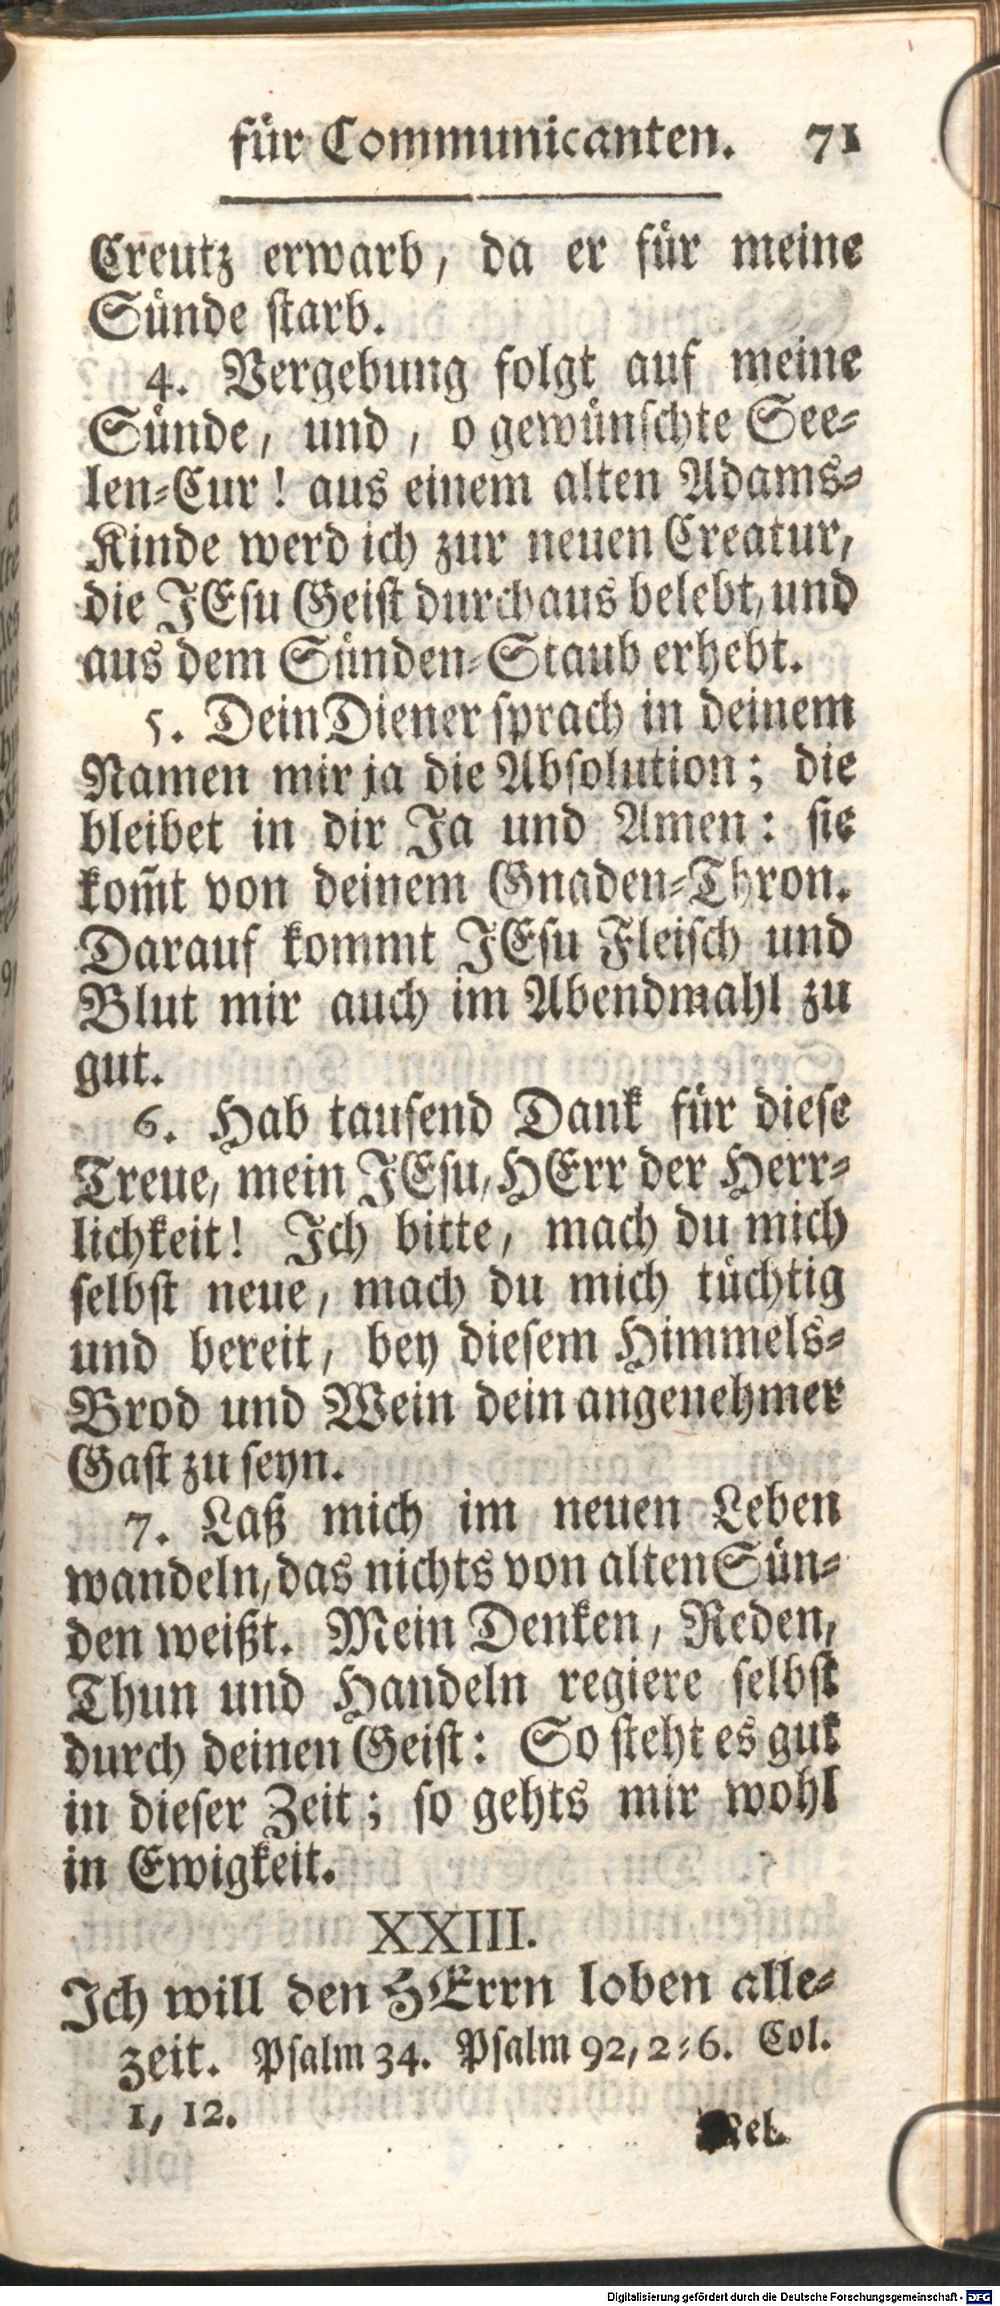 für Communicanten. 71
Creutz erwarb, da er für meine
Sünde starb.
4. Vergebung folgt auf meine
Sünde, und, o gewünschte See-
len-Cur! aus einem alten Adams-
Kinde werd ich zur neuen Creatur,
die JEsu Geist durchaus belebt, und
aus dem Sünden-Staub erhebt.
5. Dein Diener sprach in deinem
Namen mir ja die Absolution; die
bleibet in dir Ja und Amen: sie
kom̅t von deinem Gnaden-Thron.
Darauf kommt JEsu Fleisch und
Blut mir auch im Abendmahl zu
gut.
6. Hab tausend Dank für diese
Treue, mein JEsu, HErr der Herr-
lichkeit! Ich bitte, mach du mich
selbst neue, mach du mich tüchtig
und bereit, bey diesem Himmels-
Brod und Wein dein angenehmer
Gast zu seyn.
7. Laß mich im neuen Leben
wandeln, das nichts von alten Sün-
den weißt. Mein Denken, Reden,
Thun und Handeln regiere selbst
durch deinen Geist: So steht es gut
in dieser Zeit; so gehts mir wohl
in Ewigkeit.
XXIII.
Ich will den HErrn loben alle-
zeit. Psalm 34. Psalm 92, 2-6. Col.
1, 12.
Mel.
Digitalisierung gefördert durch die Deutsche Forschungsgemeinschaft - DFG